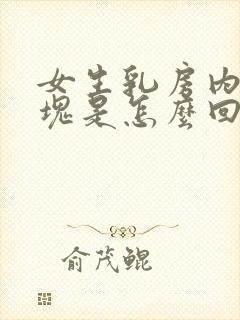 女生乳房内
块是怎么回
俞茂鲲